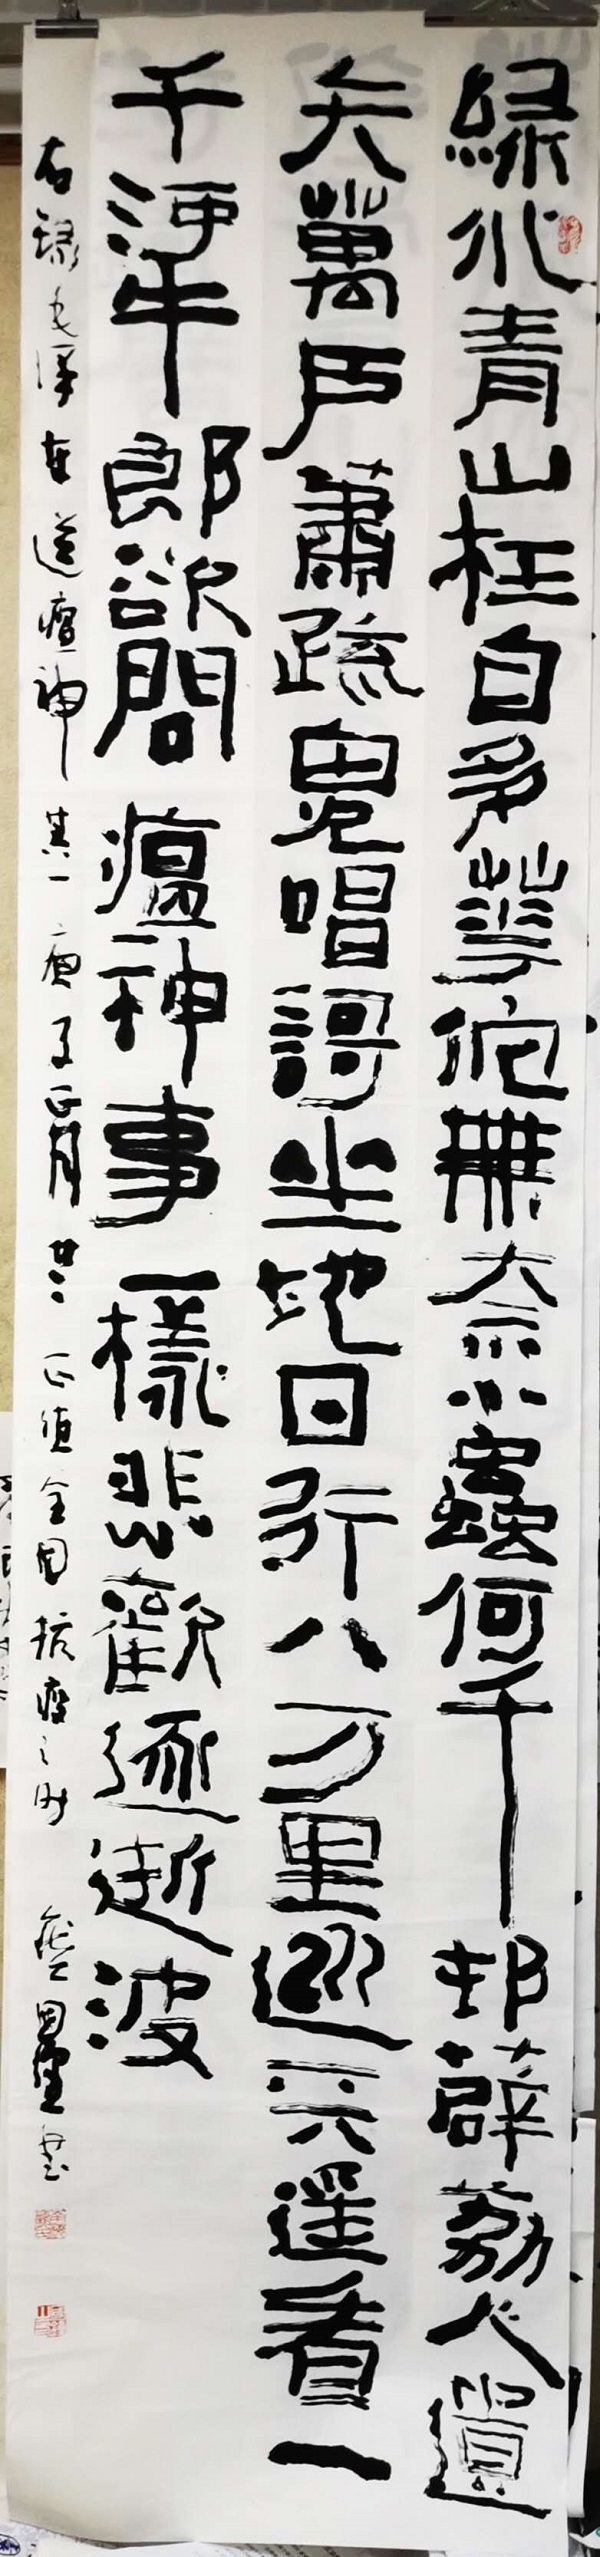 緑水青山枉自多華佗無奈小蟲何千邨薜荔人遺
矢萬戶蕭疏鬼唱謌坐地日行八万里巡天遥看一
千河牛郎欲問瘟神事一樣悲歡逐逝波
右録毛澤東送瘟神其一庚子正月廿二正值全国抗疫之时 書